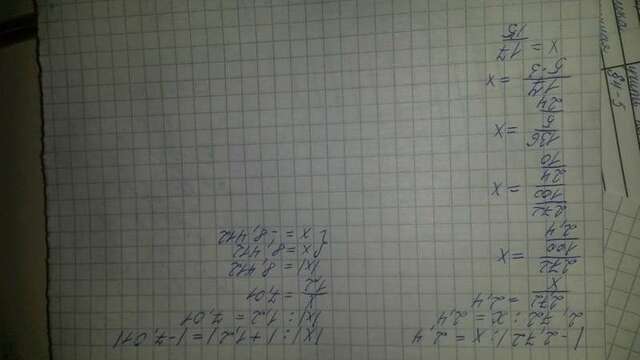 |-2,72| : x = 2,4
2,72 : x = 2,4
2,72/x = 2,4
272/100/2,4 = x
272/100/24/10 = x
136/5/24 = x
17/5·3 = x
x = 17/15
|x| : |+1,2| = |-7,01|
|x| : 1,2 = 7,01
x/1,2 = 7,01
|x| = 8,412
{x = 8,412
{x = -8,412